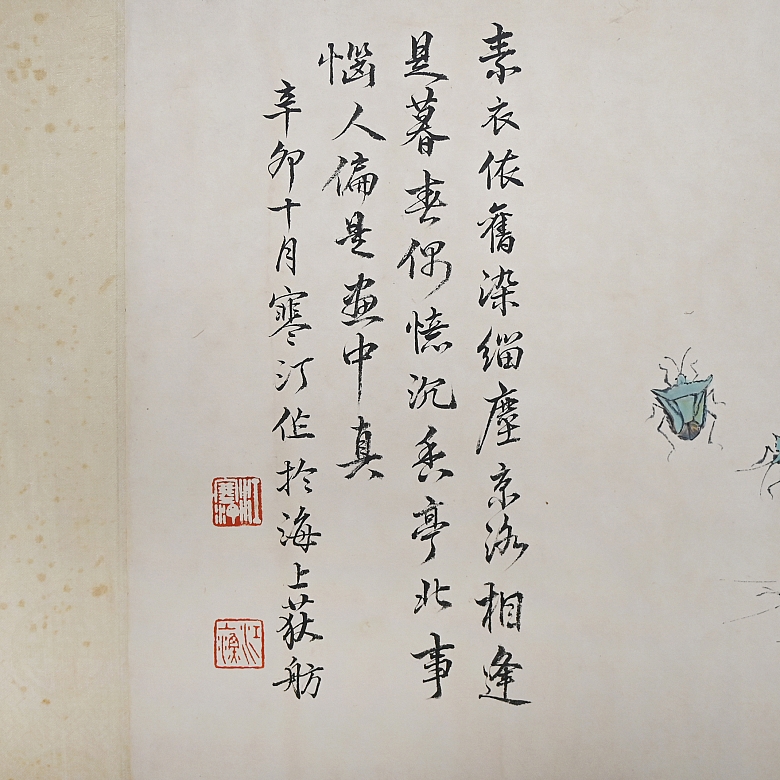 素衣依舊染緇塵京洛相逢
是暮春偶憶沉香亭北事
惱人偏是畫中真
辛卯十月寒汀作於海上荻舫